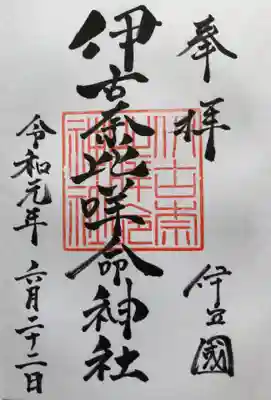 奉拝
伊豆國
伊古奈比咩命神社
令和元年 六月二十二日